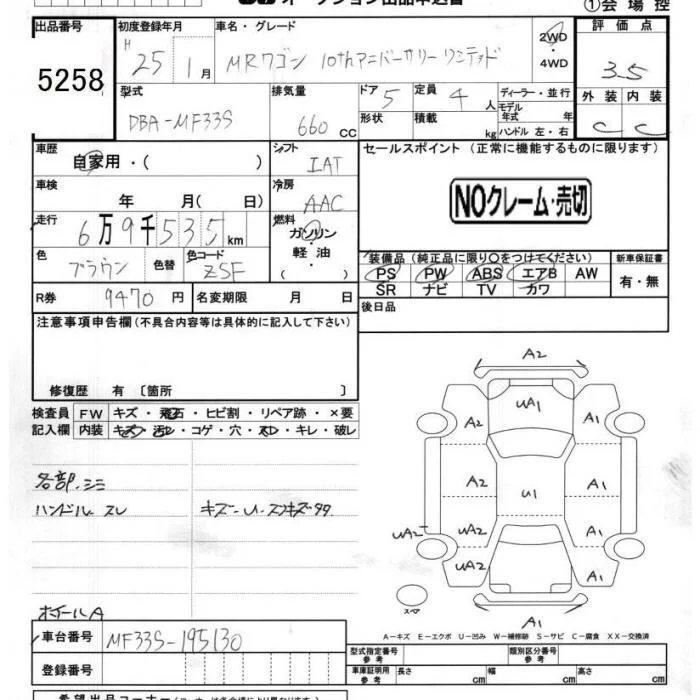 オークション出品申込書
①会場控
出品番号 初度登録年月 車名・グレード 評価点
5258
H 25 1月 MRワゴン 10thアニバーサリーリミテッド 2WD・4WD 3.5
型式 排気量 ドア 定員 ディーラー・並行 外装 内装
DBA-MF33S 660 CC 5 4 人 モデル年式 年 C C
形状 積載 kg ハンドル 左・右
車歴 自家用・( ) シフト IAT セールスポイント (正常に機能するものに限ります)
車検 年 月( 日) 冷房 AAC NOクレーム・売切
走行 6万9千535km 燃料 ガソリン・軽油・( )
色 ブラウン 色替 色コード ZSF 装備品(純正品に限り○をつけてください) 新車保証書
PS PW ABS エアB AW 有・無
SR ナビ TV カワ
R券 9470 円 名変期限 月 日 後日品
注意事項申告欄(不具合内容等は具体的に記入して下さい)
修復歴 有 〔箇所 〕
検査員 FW キズ・飛石・ヒビ割・リペア跡・×要
記入欄 内装 キズ・汚レ・コゲ・穴・スレ・キレ・破レ
A2
UA1 A1
A2 U1 A1
UA2 UA2 A1
UA2 A1
A1
スペア
各部シミ
ハンドル スレ キズ・U・スリキズ
ホイールA
A-キズ E-エクボ U-凹み W-補修跡 S-サビ C-腐食 XX-交換済
車台番号 MF33S-195130
型式指定番号 参考 類別区分番号 参考
登録番号
車庫証明用 参考 長さ cm 幅 cm 高さ cm
希望出品コーナー